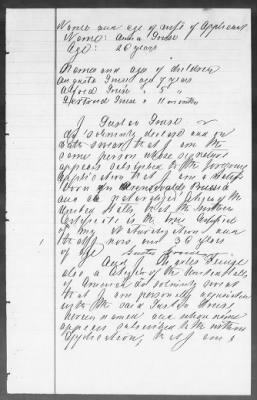 Name and age of wife of Applicant
Name:
Age: 26 years
Names and age of children
Augusta aged 7 years
Alfred " 5 "
Gertrude " 11 months
I Gustav
do solemnly declare and
swear that I am the
same person whose signature
appears subscribed to the foregoing
Application that I am a
born in Prussia
and a naturalized Citizen of the
United States, that the
Certificate is the true Certificate
of my Naturalization and
that I now am 36 years
of age
And I Charles
also, a Citizen of the United States
of America do solemnly swear
that I am personally acquainted
with the said Gustav
herein named and whose name
appears subscribed to the within
Application, that I am